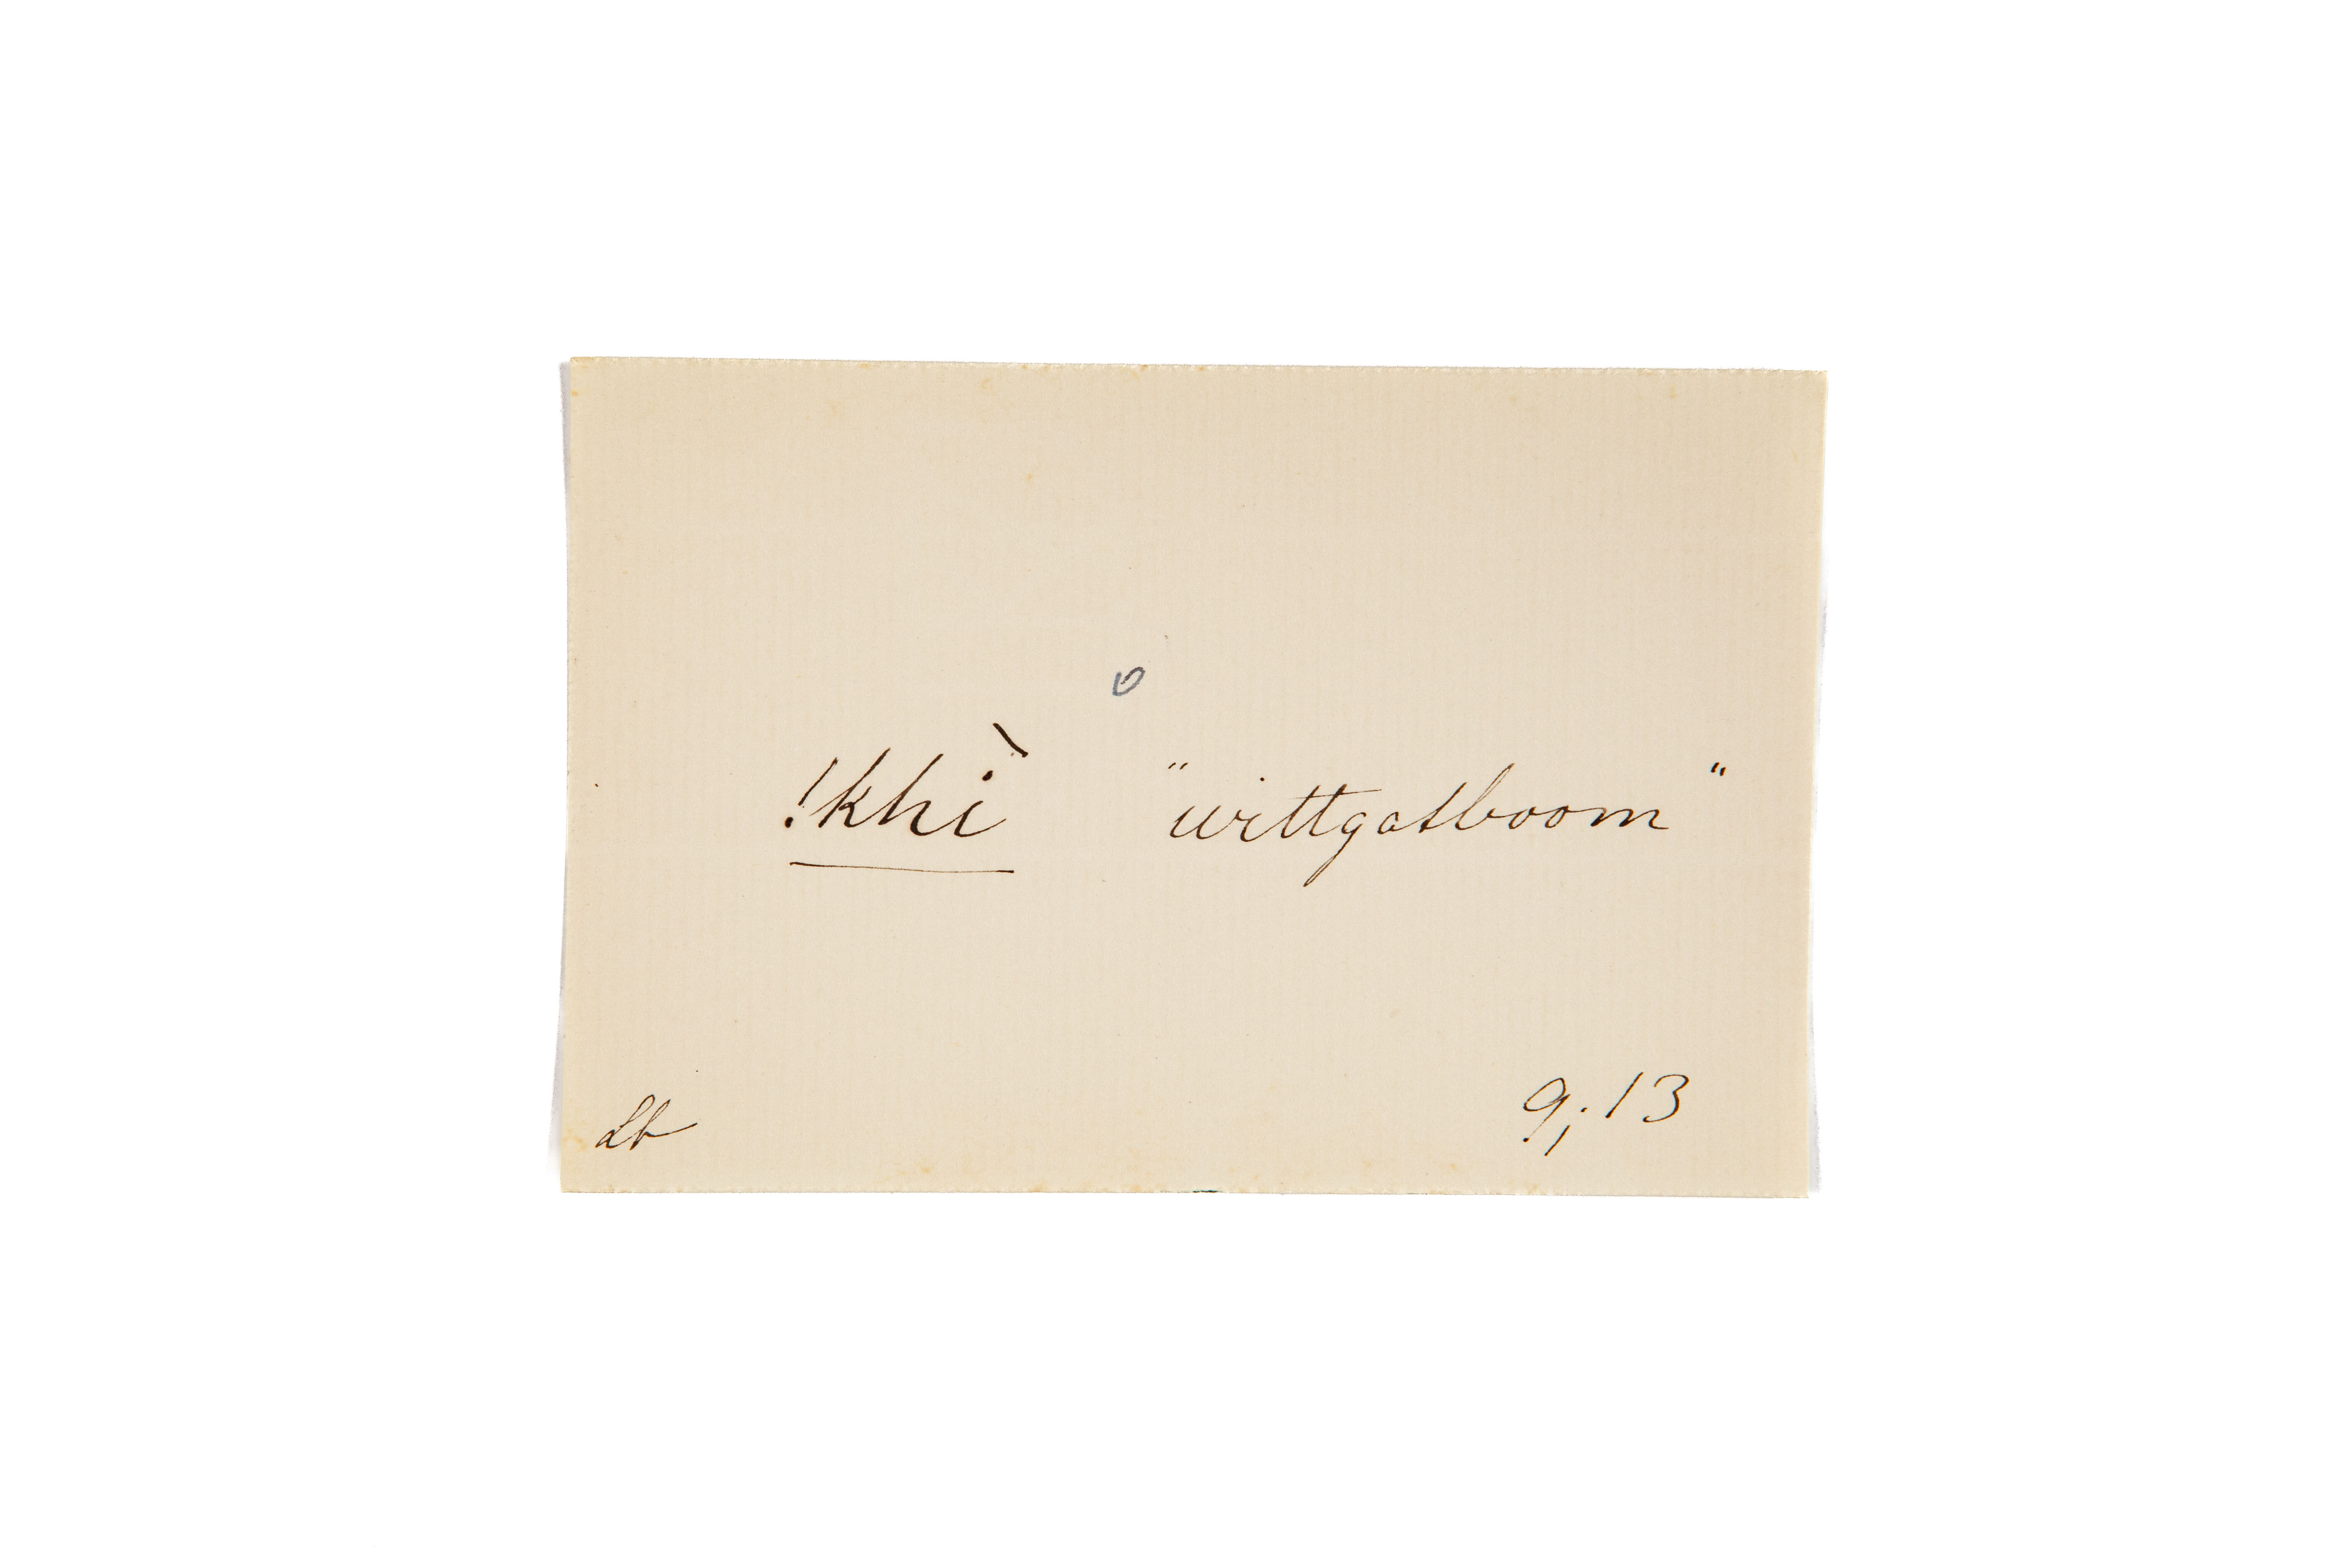 !khì "wittgatboom"
Lb 9; 13